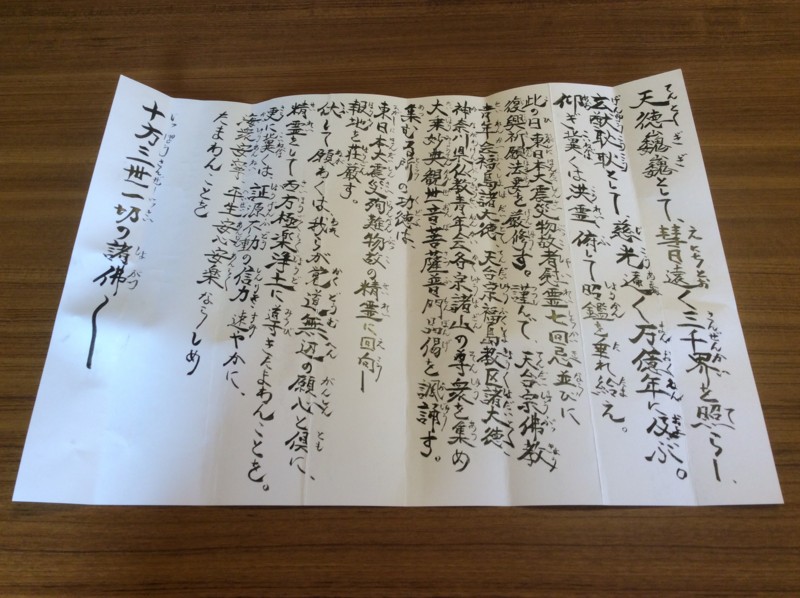 天徳巍巍として、彗日遠く三千界を照らし、
玄猷耿耿として慈光遠く万億年に及ぶ。
仰ぎ冀くは洪霊俯して照鑑を垂れ給え。
此の日東日本大震災物故者慰霊七回忌並びに
復興祈願法要を厳修す。謹んで、天台宗佛教
青年会福島諸大徳、天台宗福島教区諸大徳、
神奈川県仏教青年会各宗諸山の尊衆を集め
大乗妙典観世音菩薩普門品偈を諷誦す。
集むる所の功徳は、
東日本大震災殉難物故の精霊に回向し
報地を荘厳す。
伏して願わくは我らが覚道無辺の願心と倶に、
精霊をして西方極楽浄土に導きたまわんことを。
更に冀くは
信力速やかに、
平生安心安楽ならしめ
たまわんことを
十方三世一切の諸佛